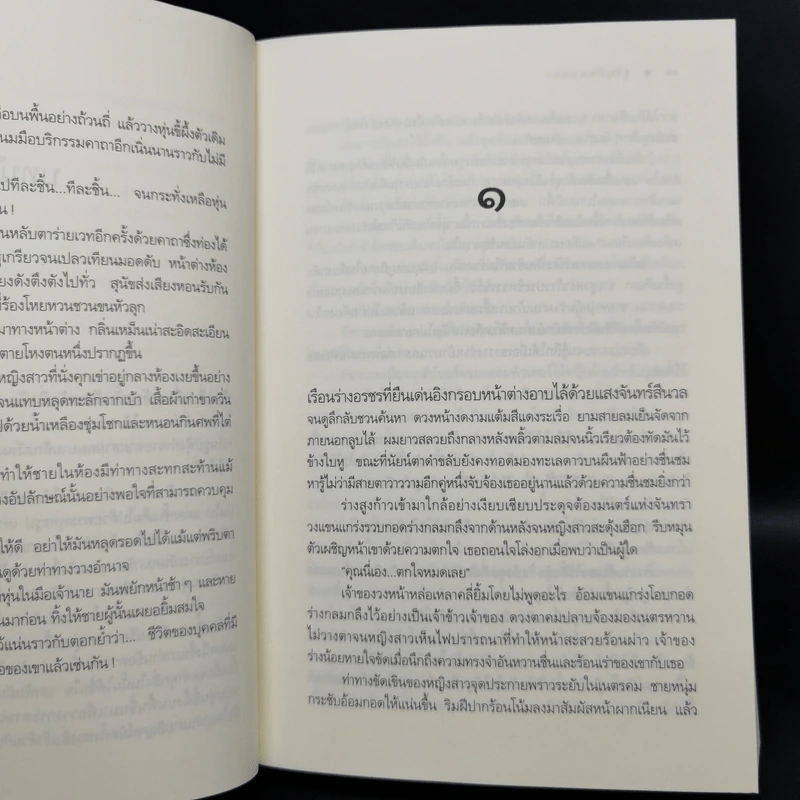 อบนพื้นอย่างถ้วนถี่ แล้ววางหุ่นขี้ผึ้งตัวเดิม
นมมือบริกรรมคาถาอีกเนิ่นนานราวกับไม่มี
ปทีละชิ้น...ทีละชิ้น... จนกระทั่งเหลือหุ่น
น !
นหลับตาร่ายเวทอีกครั้งด้วยคาถาซึ่งท่องได้
เกรียวจนเปลวเทียนมอดดับ หน้าต่างห้อง
ยงดังตึงตังไปทั่ว สุนัขส่งเสียงหอนรับกัน
ที่ร้องโหยหวนชวนขนหัวลุก
มาทางหน้าต่าง กลิ่นเหม็นเน่าสะอิดสะเอียน
ตายโหงตนหนึ่งปรากฏขึ้น
หญิงสาวที่นั่งคุกเข่าอยู่กลางห้องเงยขึ้นอย่าง
จนแทบหลุดทะลักจากเบ้า เสื้อผ้าเก่าขาดวิ่น
ปด้วยน้ำเหลืองชุ่มโชกและหนอนกินศพที่ไต่
ทำให้ชายในห้องมีท่าทางสะทกสะท้านแม้
งอัปลักษณ์นั้นอย่างพอใจที่สามารถควบคุม
ให้ดี อย่าให้มันหลุดรอดไปได้แม้แต่พริบตา
นดูด้วยท่าทางวางอำนาจ
หุ่นในมือเจ้านาย มันพยักหน้าช้า ๆ และหาย
นมาก่อน ทิ้งให้ชายผู้นั้นเผยอยิ้มสมใจ
ว้แน่นราวกับตอกย้ำว่า... ชีวิตของบุคคลที่มี
อของเขาแล้วเช่นกัน !
๑
เรือนร่างอรชรที่ยืนเด่นอิงกรอบหน้าต่างอาบไล้ด้วยแสงจันทร์สีนวล
จนดูลึกลับชวนค้นหา ดวงหน้างดงามแต้มสีแดงระเรื่อ ยามสายลมเย็นจัดจาก
ภายนอกลูบไล้ ผมยาวสลวยถึงกลางหลังพลิ้วตามลมจนนิ้วเรียวต้องทัดมันไว้
ข้างใบหู ขณะที่นัยน์ตาดำขลับยังคงทอดมองทะเลดาวบนผืนฟ้าอย่างชื่นชม
หารู้ไม่ว่ามีสายตาวาววามอีกคู่หนึ่งจับจ้องเธออยู่นานแล้วด้วยความชื่นชมยิ่งกว่า
ร่างสูงก้าวเข้ามาใกล้อย่างเงียบเชียบประดุจต้องมนตร์แห่งจันทรา
วงแขนแกร่งรวบกอดร่างกลมกลึงจากด้านหลังจนหญิงสาวสะดุ้งเฮือก รีบหมุน
ตัวเผชิญหน้าเขาด้วยความตกใจ เธอถอนใจโล่งอกเมื่อพบว่าเป็นผู้ใด
“คุณนี่เอง...ตกใจหมดเลย”
เจ้าของวงหน้าหล่อเหลาคลี่ยิ้มโดยไม่พูดอะไร อ้อมแขนแกร่งโอบกอด
ร่างกลมกลึงไว้อย่างเป็นเจ้าข้าวเจ้าของ ดวงตาคมปลาบจ้องมองเนตรหวาน
ไม่วางตาจนหญิงสาวเห็นไฟปรารถนาที่ทำให้หน้าสะสวยร้อนผ่าว เจ้าของ
ร่างน้อยหายใจขัดเมื่อนึกถึงความทรงจำอันหวานชื่นและร้อนเร่าของเขากับเธอ
ท่าทางขัดเขินของหญิงสาวจุดประกายพราวระยับในเนตรคม ชายหนุ่ม
กระชับอ้อมกอดให้แน่นขึ้น ริมฝีปากร้อนโน้มลงมาสัมผัสหน้าผากเนียน แล้ว